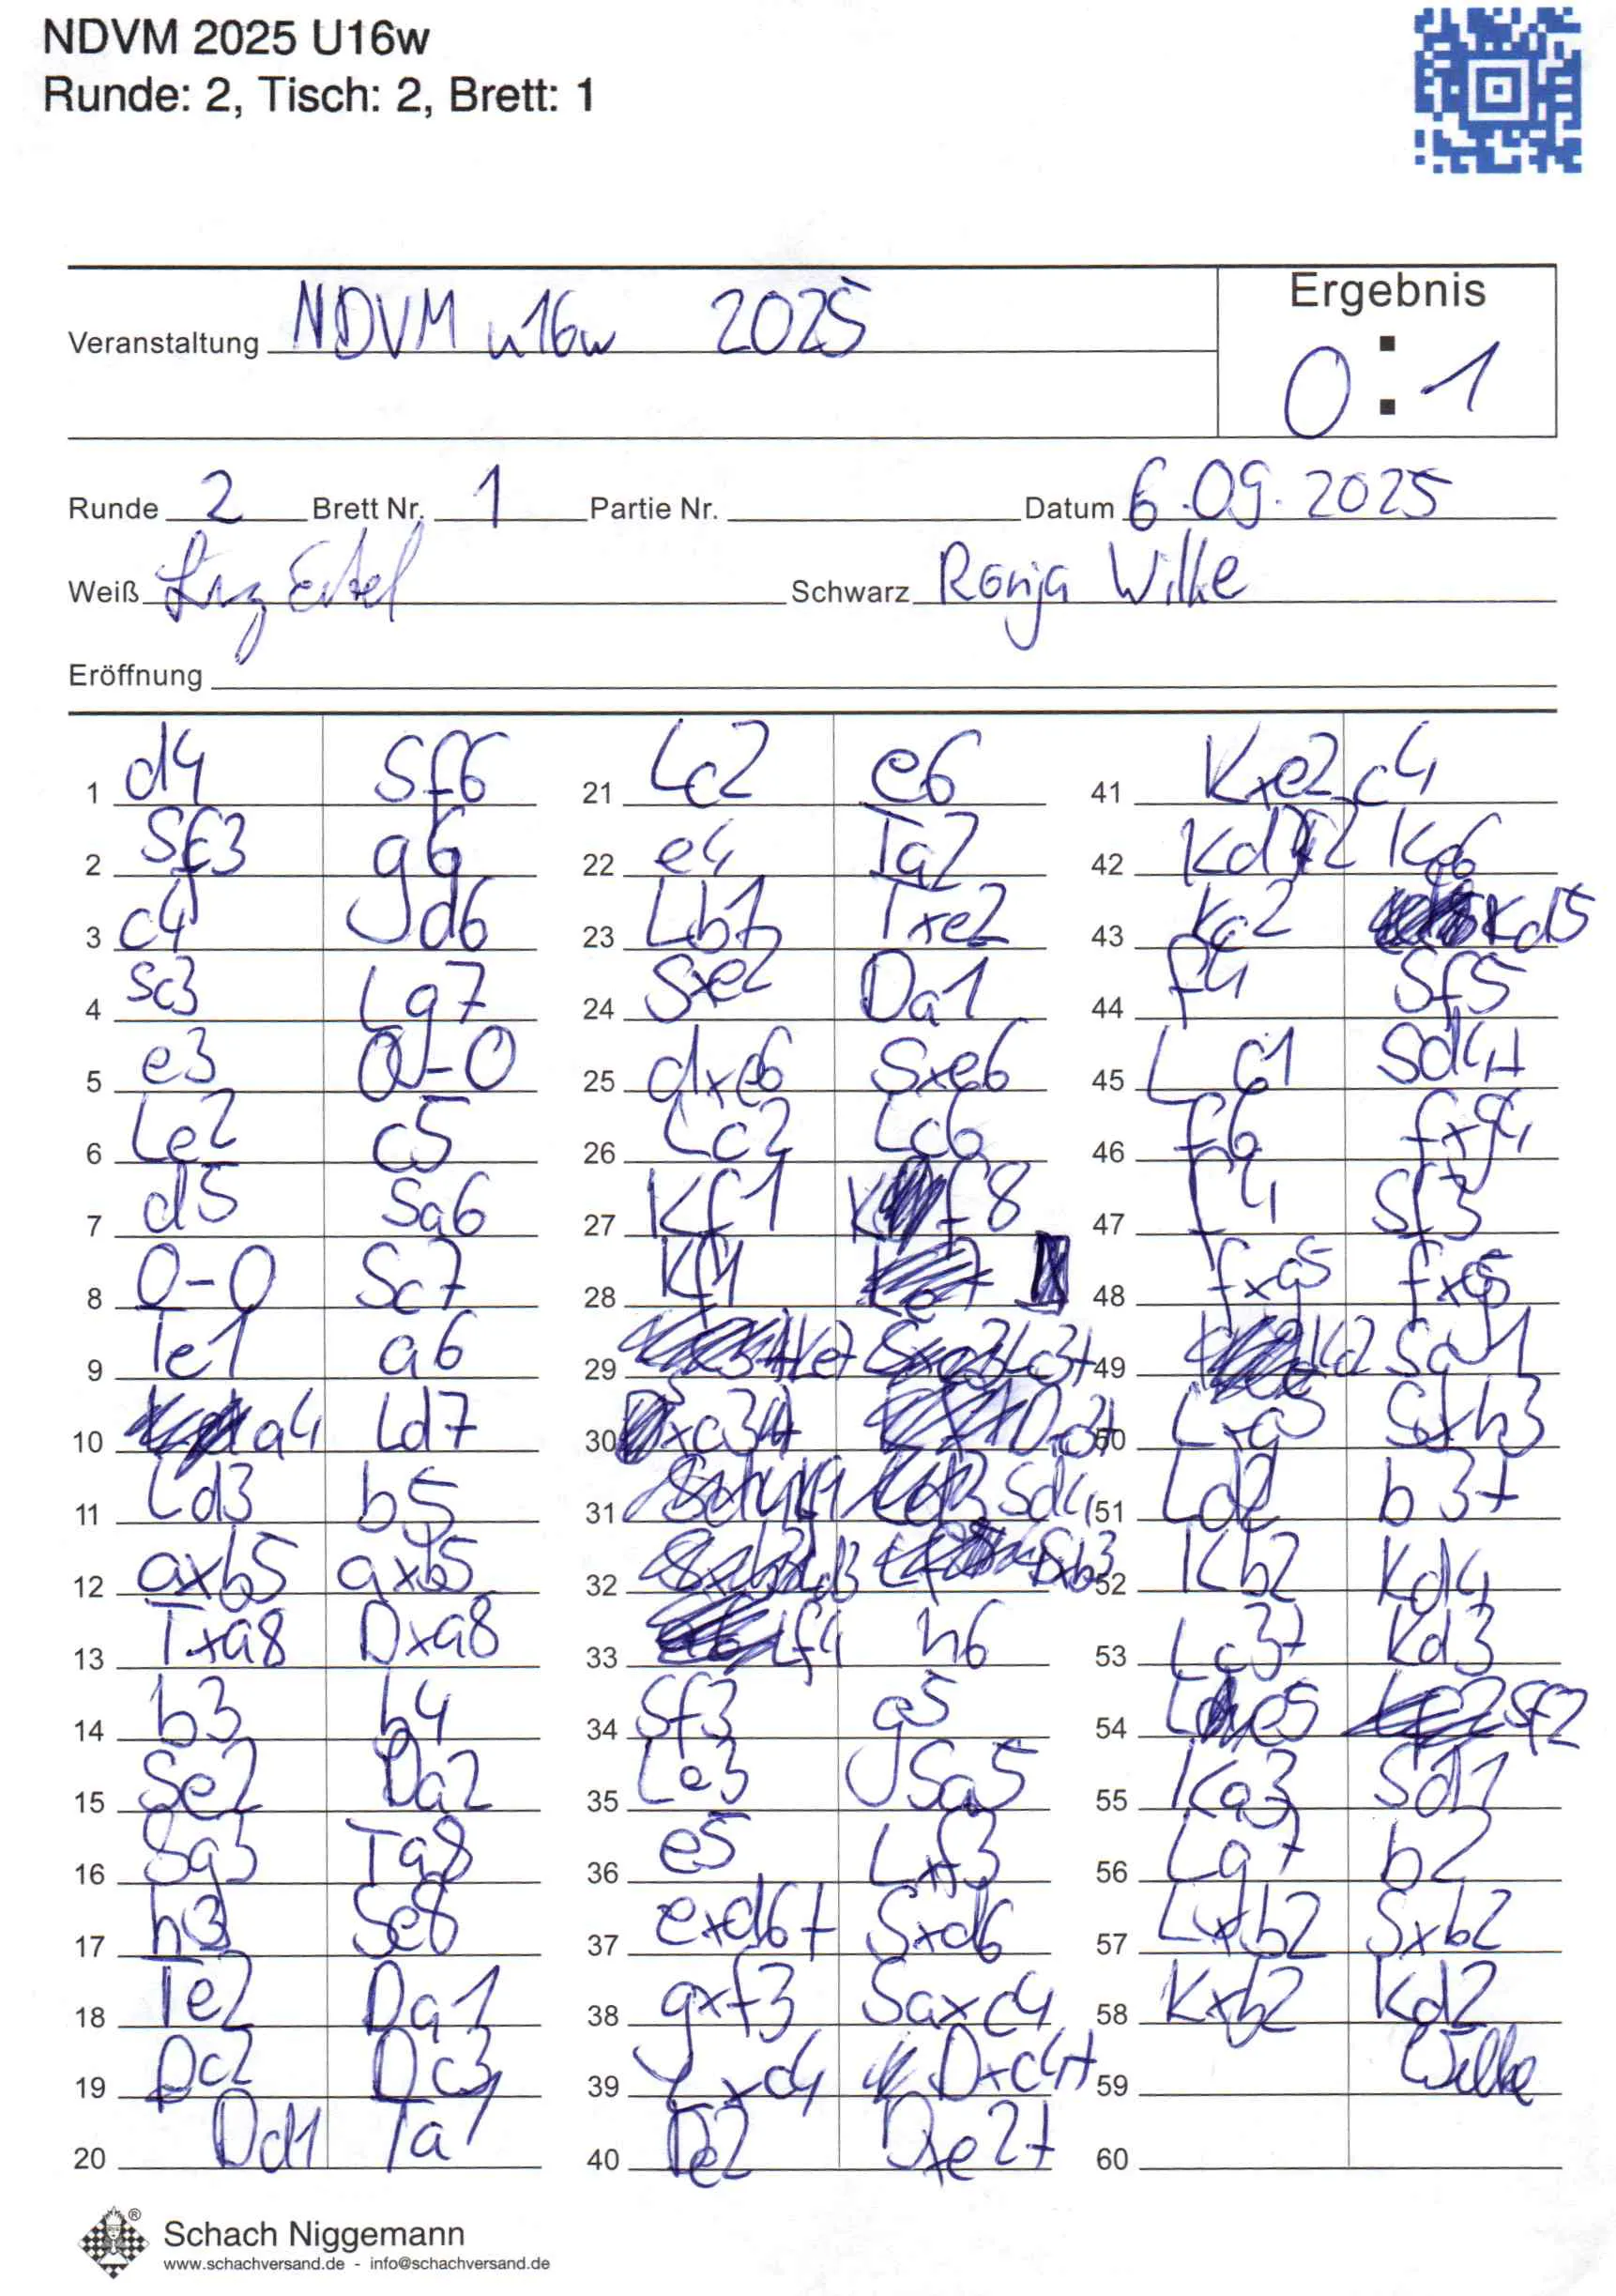 NDVM 2025 U16w
Runde: 2, Tisch: 2, Brett: 1
Ergebnis
Veranstaltung NDVM u16w 2025
0 : 1
Runde 2 Brett Nr. 1 Partie Nr. Datum 6.09.2025
Weiß Schwarz Ronja Wilke
Eröffnung
1 d4 Sf6
2 Sf3 g6
3 c4 d6
4 Sc3 Lg7
5 e3 0-0
6 Le2 c5
7 d5 Sa6
8 0-0 Sc7
9 Te1 a6
10 a4 Ld7
11 Ld3 b5
12 axb5 axb5
13 Txa8 Dxa8
14 b3 b4
15 Se2 Da2
16 Sg3 Ta8
17 h3 Se8
18 Te2 Da1
19 Dc2 Dc3
20 Dd1 Ta1
21 Lc2 e6
22 e4 Ta2
23 Lb1 Txe2
24 Sxe2 Da1
25 dxe6 Sxe6
26 Lc2 Lc6
27 Kf1 Kf8
28
29 Lc3+
30
31 Sd4
32 Ld3 Sxb3
33 Lf4 h6
34 Sf3 g5
35 Le3 Sa5
36 e5 Lxf3
37 exd6+ Sxd6
38 gxf3 Saxc4
39 Lxc4 Dxc4+
40 De2 Dxe2+
41 Kxe2 c4
42 Ke6
43 Kc2 Kd5
44 f4 Sf5
45 Lc1 Sd4+
46 fxg4
47 f4 Sf3
48 fxg5 fxg5
49 Kc2 Sg1
50 Lxg5 Sxh3
51 Ld2 b3+
52 Kb2 Kd4
53 Lc3+ Kd3
54 Le5 Sf2
55 Ka3 Sd1
56 Lg7 b2
57 Lxb2 Sxb2
58 Kxb2 Kd2
59 Wilke
60
Schach Niggemann
www.schachversand.de - info@schachversand.de